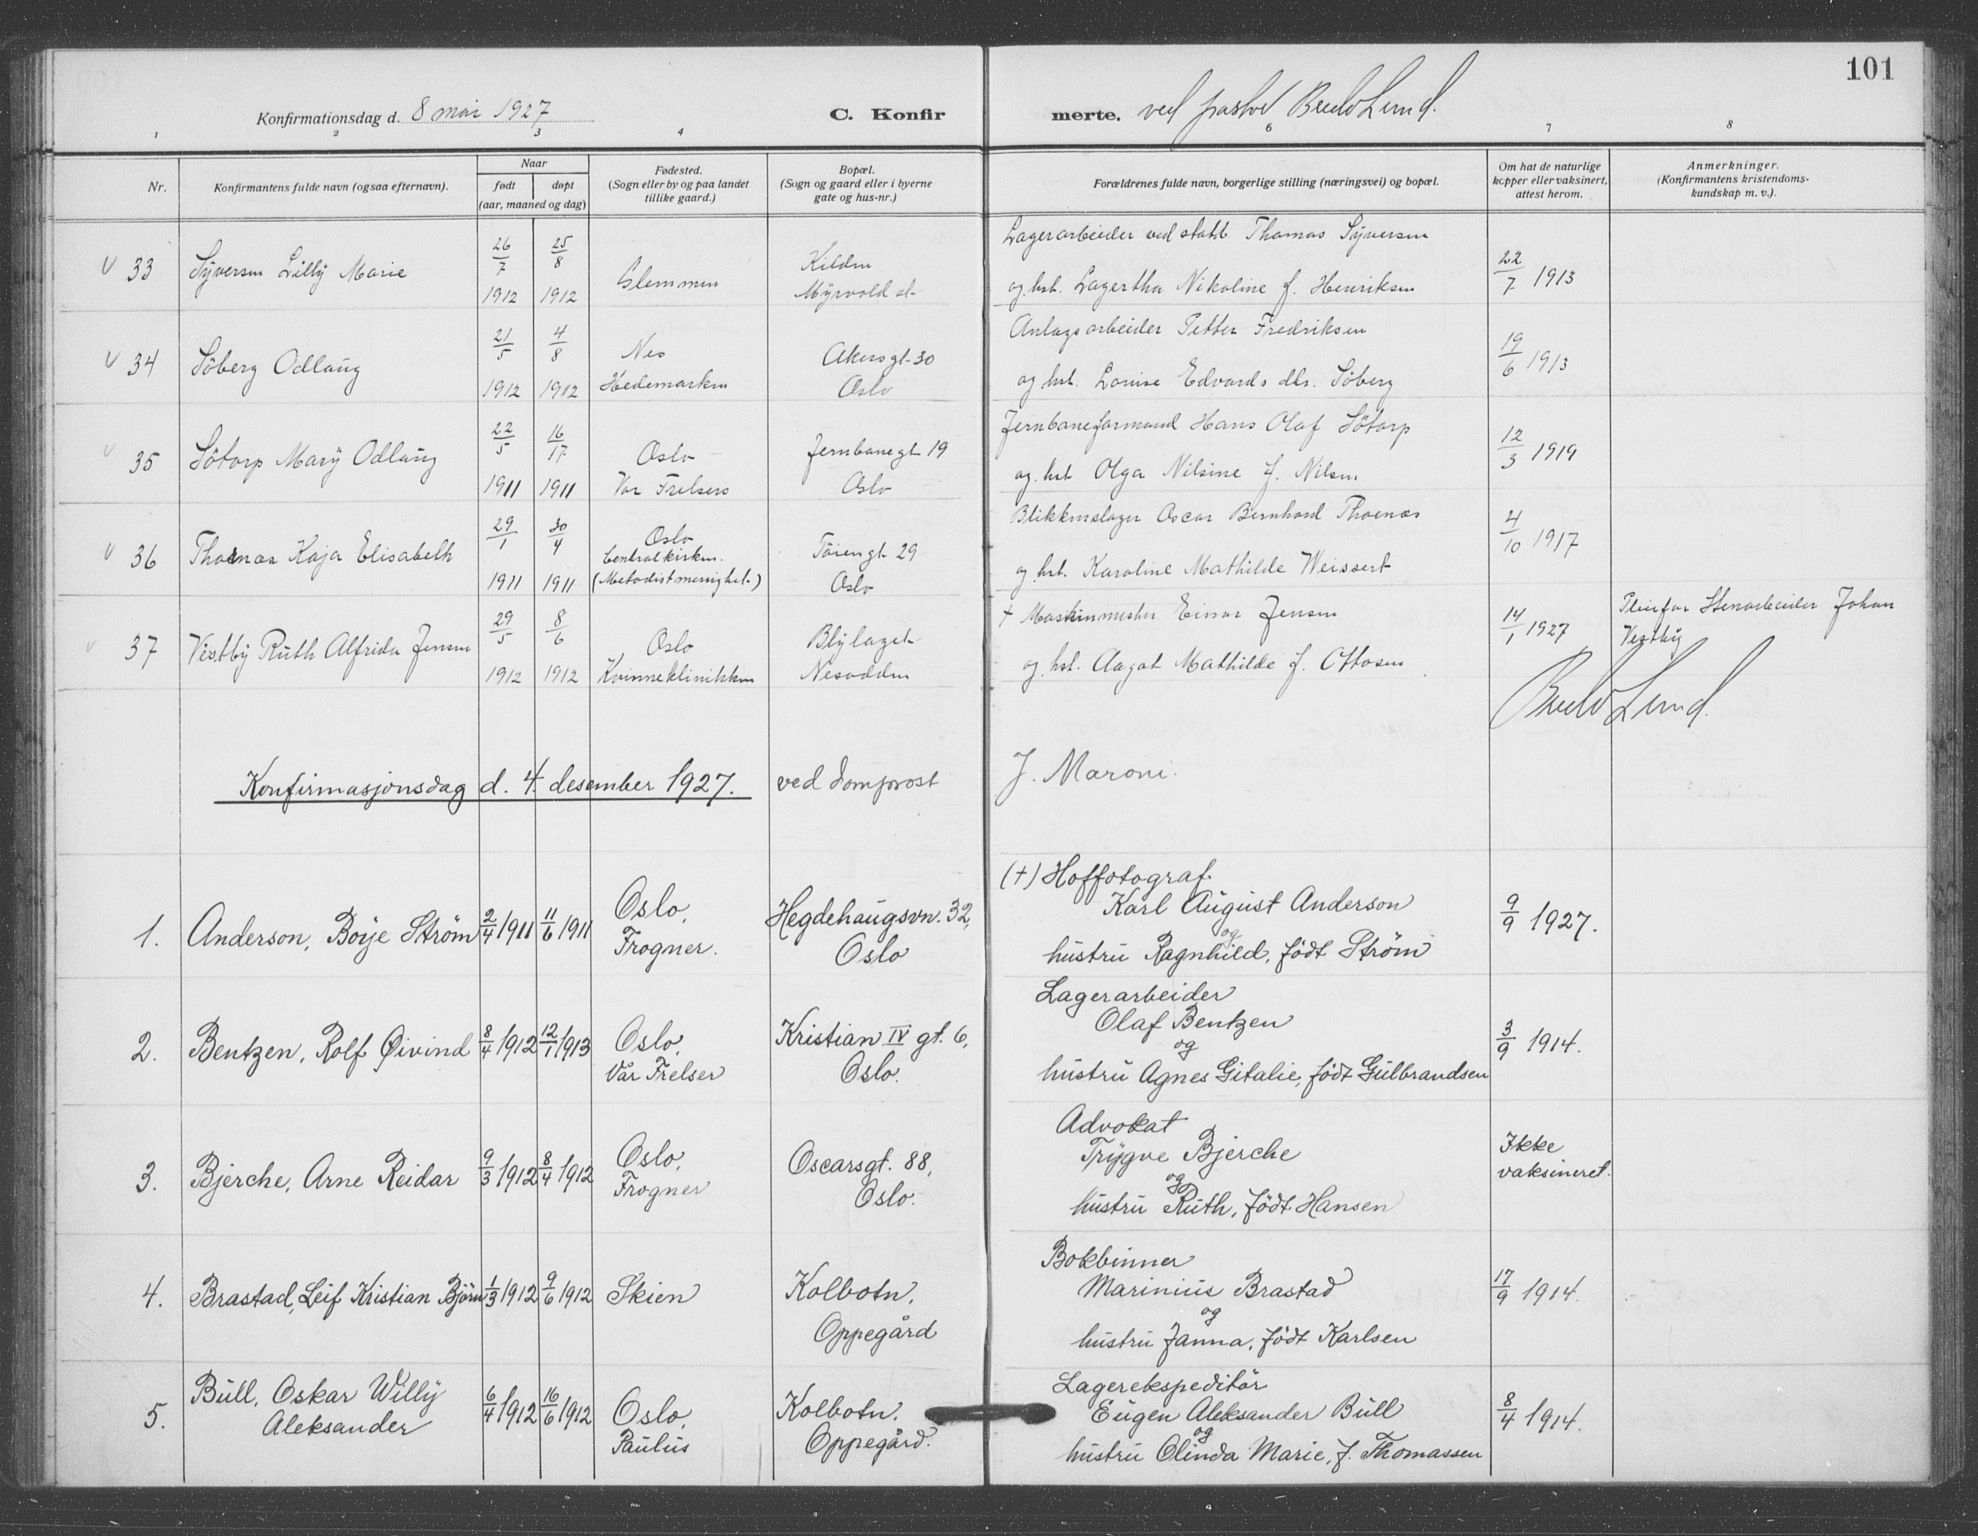 101
Konfirmationsdag d. 8 mai 1927
C. Konfir
merte. ved pastor Bredo Lund.
1 2 3 4 6 7 8
Nr.
Konfirmantens fulde navn (ogsaa efternavn).
Naar
født
døpt
(aar, maaned og dag)
Fødested.
(Sogn eller by og paa landet
tillike gaard.)
Bopæl.
(Sogn og gaard eller i byerne
gate og hus-nr.)
Forældrenes fulde navn, borgerlige stilling (næringsvei) og bopæl.
Om hat de naturlige
kopper eller vaksinert,
attest herom.
Anmerkninger.
(Konfirmantens kristendoms-
kundskap m. v.).
v 33
Syversen Lilly Marie
26/7 1912
25/8 1912
Glemmen
Kilden
Myrvold st.
Lagerarbeider ved statsb. Thomas Syversen
og hst. Lagertha Nikoline f. Henriksen
22/7 1913
v 34
Söberg Odlaug
21/5 1912
4/8 1912
Nes
Hedemarken
Akersgt. 30
Oslo
Anlægsarbeider Petter Fredriksen
og hst. Lovise Edvards dtr. Söberg
19/6 1913
v 35
Sötorp Mary Odlaug
22/5 1911
16/17 1911
Oslo
Vor Frelsers
Jernbanegt 19
Oslo
Jernbaneformand Hans Olaf Sötorp
og hst Olga Nilsine f. Nilsen
12/3 1919
v 36
Thoenæs Kaja Elisabeth
29/1 1911
30/4 1911
Oslo
Centralkirken.
(Metodistmenighet.)
Töiengt 29
Oslo
Blikkenslager Oscar Bernhard Thoenæs
og hst. Karoline Mathilde Weissert
4/10 1917
v 37
Vestby Ruth Alfrida Jensen
29/5 1912
8/6 1912
Oslo
Kvinneklinikken
Blylaget
Nesodden
+ Maskinmester Einar Jensen
og hst. Aagot Mathilde f. Ottosen
14/1 1927
Pleiefar Stenarbeider Johan
Vestby
Bredo Lund.
Konfirmasjonsdag d. 4. desember 1927. ved domprost
J. Maroni.
1.
Anderson, Böye Ström
2/4 1911
11/6 1911
Oslo,
Frogner.
Hegdehaugsvn. 32,
Oslo
(+) Hoffotograf.
Karl August Anderson
og
hustru Ragnhild, född Ström
9/9 1927.
2.
Bentzen, Rolf Øivind
8/4 1912
12/1 1913
Oslo,
Vår Frelser
Kristian IV gt. 6,
Oslo.
Lagerarbeider
Olaf Bentzen
og
hustru Agnes Gitalie, född Gulbrandsen
3/9 1914.
3.
Bjerche, Arne Reidar
9/3 1912
8/4 1912
Oslo,
Frogner
Oscarsgt. 88,
Oslo.
Advokat
Trygve Bjerche
og
hustru Ruth, född Hansen
Ikke
vaksineret.
4.
Brastad, Leif Kristian Björn
1/3 1912
9/6 1912
Skien
Kolbotn,
Oppegård
Bokbinner
Marinius Brastad
og
hustru Janna, född Karlsen
17/9 1914.
5.
Bull, Oskar Willy
Aleksander
6/4 1912
16/6 1912
Oslo,
Paulus
Kolbotn.
Oppegård.
Lagerekspeditör
Eugen Aleksander Bull
og
hustru Olinda Marie, f. Thomassen
8/4 1914.